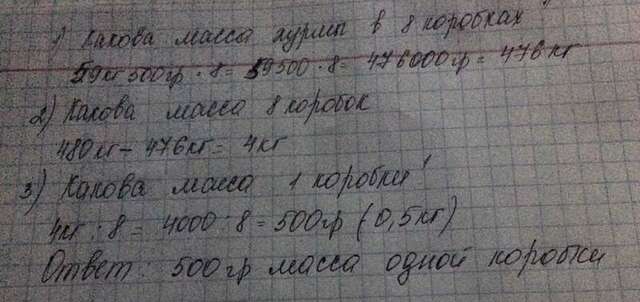 1) Какова масса хурмы в 8 коробках
59кг 500гр · 8 = 59500 · 8 = 476000гр = 476 кг
2) Какова масса 8 коробок
480кг - 476кг = 4кг
3) Какова масса 1 коробки
4кг : 8 = 4000 : 8 = 500гр (0,5кг)
Ответ: 500гр масса одной коробки